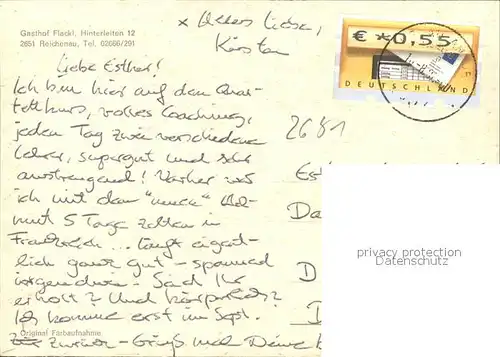 Gasthof Flackl, Hinterleiten 12
2651 Reichenau, Tel. 02666/291
x Alles Liebe,
Kirsten
€ *0,55
DEUTSCHLAND
Liebe Esther!
Ich bin hier auf den Quar-
tettkurs, volles Coaching,
jeden Tag zwei verschiedene
Lehrer, supergut und sehr
anstrengend! Vorher war
ich mit dem "neuen"
mit 5 Tage zelten in
Frankreich... läuft eigent-
lich ganz gut - spannend
irgendwie. Seid Ihr
erholt? Und körperlich?
Ich komme erst im Sept.
zurück - Grüß mal Deine
2681
Est
Da
D
privacy protection
Datenschutz
Original Farbaufnahme